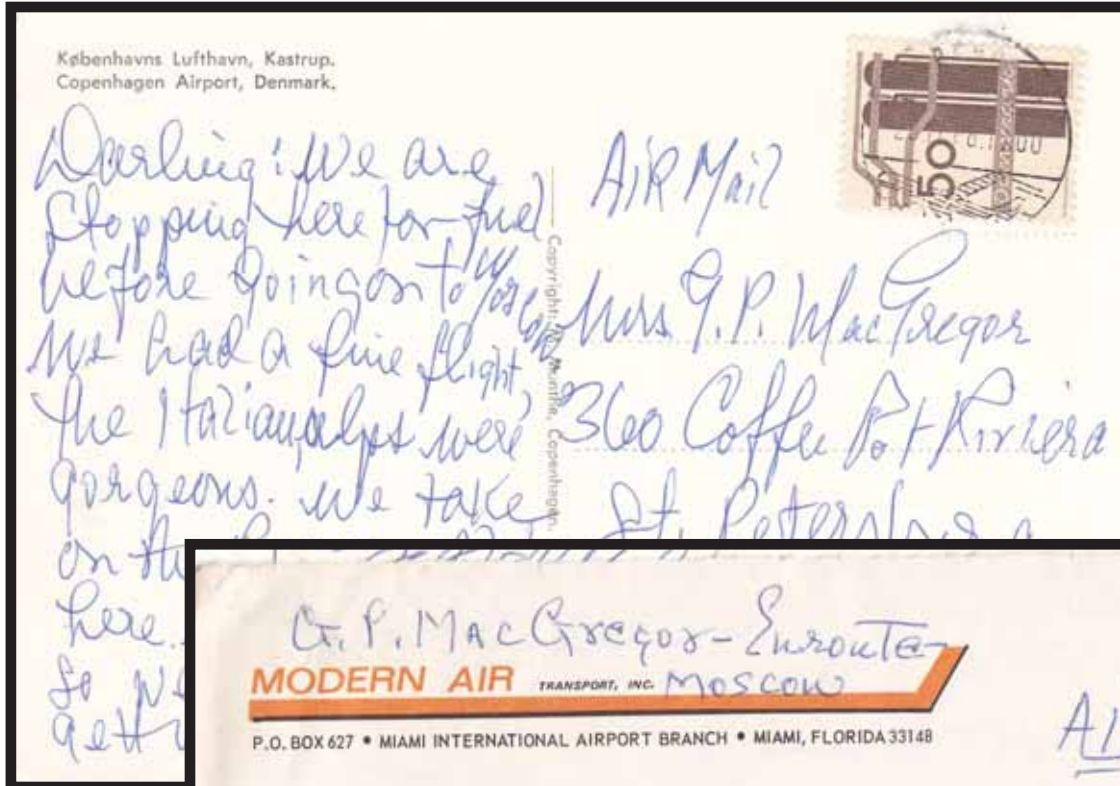 Københavns Lufthavn, Kastrup.
Copenhagen Airport, Denmark.
Darling: We are
stopping here for fuel
before going on to Moscow
We had a fine flight,
the Italian alps were
gorgeous. We take
on the
here.
So we
gett
Copyright: Munthe, Copenhagen.
50
AIR Mail
Mrs. G.P. MacGregor
360 Coffee Pot Riviera
St. Petersburg
G. P. MacGregor - Enroute-
Moscow
MODERN AIR TRANSPORT, INC.
P.O. BOX 627 • MIAMI INTERNATIONAL AIRPORT BRANCH • MIAMI, FLORIDA 33148
AI